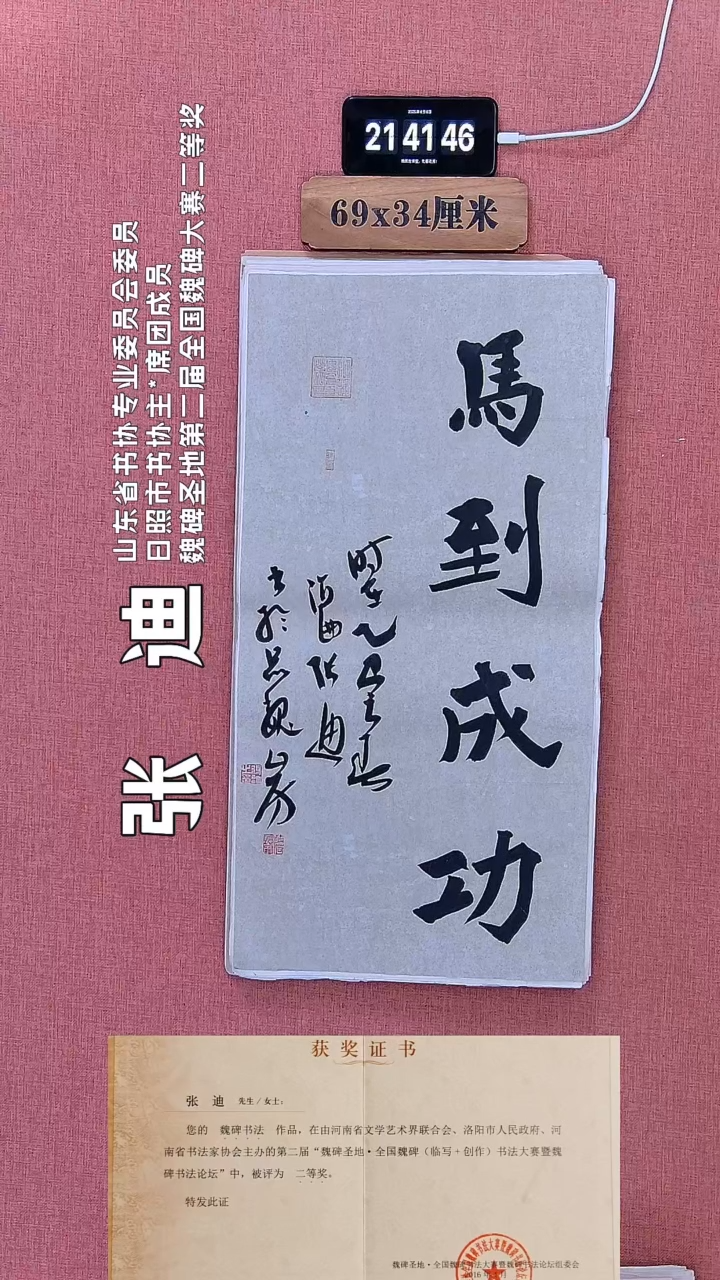 21 41 46
69x34厘米
馬到成功
时在乙巳年春
海曲张迪
书于忘魏山房
张 迪
山东省书协专业委员会委员
日照市书协主*席团成员
魏碑圣地第二届全国魏碑大赛二等奖
获奖证书
张 迪 先生/女士:
您的 魏碑书法 作品，在由河南省文学艺术界联合会、洛阳市人民政府、河
南省书法家协会主办的第二届“魏碑圣地·全国魏碑（临写+创作）书法大赛暨魏
碑书法论坛”中，被评为 二等奖。
特发此证
魏碑圣地·全国魏碑书法大赛暨魏碑书法论坛组委会